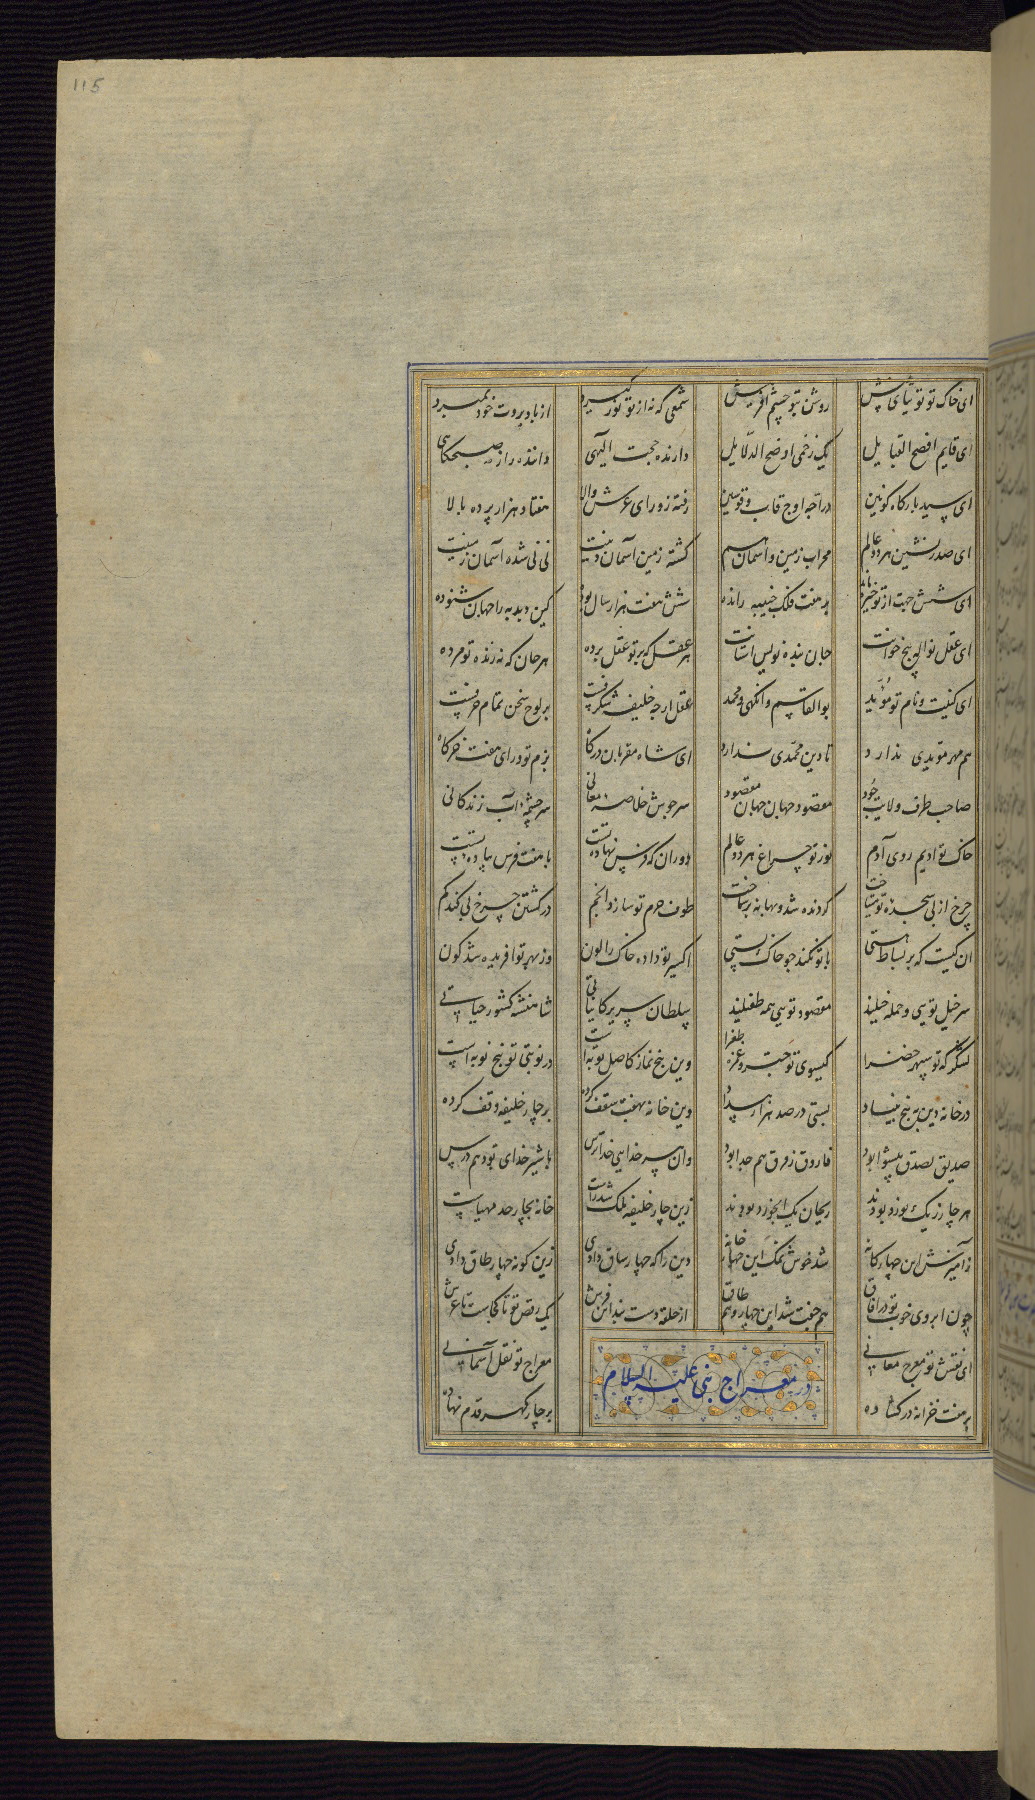 115
ای خاک تو توتیای بینش روشن بتو چشم آفرینش شمعی که نه از تو نور گیرد از باد بروت خود بمیرد
ای قایم افصح القبایل یک زخمی اوضح الدلایل دارنده حجت الهی داننده راز صبحگاهی
ای سید بارگاه کونین درآجه اوج قاب و قوسین رفته ز ورای عرش والا هفتاد هزار پرده بالا
ای صدر نشین هر دو عالم محراب زمین و آسمان هم گشته زمین آسمان ز دینت نی نی شده آسمان زمینت
ای شش جهت از تو خیره مانده بر هفت فلک جنیبه رانده شش هفت هزار سال بوده کین دبدبه را جهان شنوده
ای عقل نواله پیچ خوانت جان بنده نویس آستانت هر عقل که بی تو عقل برده هر جان که نه زنده تو مرده
ای کنیت و نام تو موید بوالقاسم وانگهی محمد عقل ارچه خلیفه شگرفست بر لوح سخن تمام حرفست
هم مهر مویدی ندارد تا دین محمدی ندارد ای شاه مقربان درگاه بزم تو ورای هفت خرگاه
صاحب طرف ولایت جود مقصود جهان جهان مقصود سرجوش خلاصه معانی سرچشمه آب زندگانی
خاک تو ادیم روی آدم نور تو چراغ هر دو عالم دوران که فرس نهاده تست با هفت فرس پیاده تست
چرخ ار پی سجده تو بشتافت طوف حرم تو سازد انجم در گشتن چرخ پی کند گم
ان کیست که بر بساط هستی با تو نکند چو خاک پستی اکسیر تو داده خاک را لون وز بهر تو آفریده شد کون
سر خیل تویی و جمله خیلند مقصود تویی همه طفیلند سلطان سریر کایناتی شاهنشه کشور حیاتی
لشگر که تو سپهر خضرا گیسوی تو چتر و غمزه طغرا وین پنج نماز کاصل توبه است در نوبتی تو پنج نوبه است
در خانه دین به پنج بنیاد بستی در صد هزار بیداد وین خانه هفت سقف کرده بر چار خلیفه وقف کرده
صدیق بصدق پیشوا بود فاروق ز فرق هم جدا بود وان پیر خدایی خدا ترس با شیر خدای بود هم درس
هر چار ز یک نورد بودند ریحان یک آبخورد بودند زین چار خلیفه ملک شد راست خانه بچار حد مهیاست
ز آمیزش این چهار گانه شد خوش نمک این چهار خانه دین را که چهار ساق دادی زین گونه چهار طاق دادی
چون ابروی خوب تو در آفاق هم جفت شد این چهار و هم طاق از حلقه دست بند این فرش یک رقص تو تا کجاست تا عرش
در معراج نبی علیه السلام
ای نقش تو معرج معانی معراج تو نقل آسمانی
بر هفت خزانه در گشاده بر چار گهر قدم نهاده